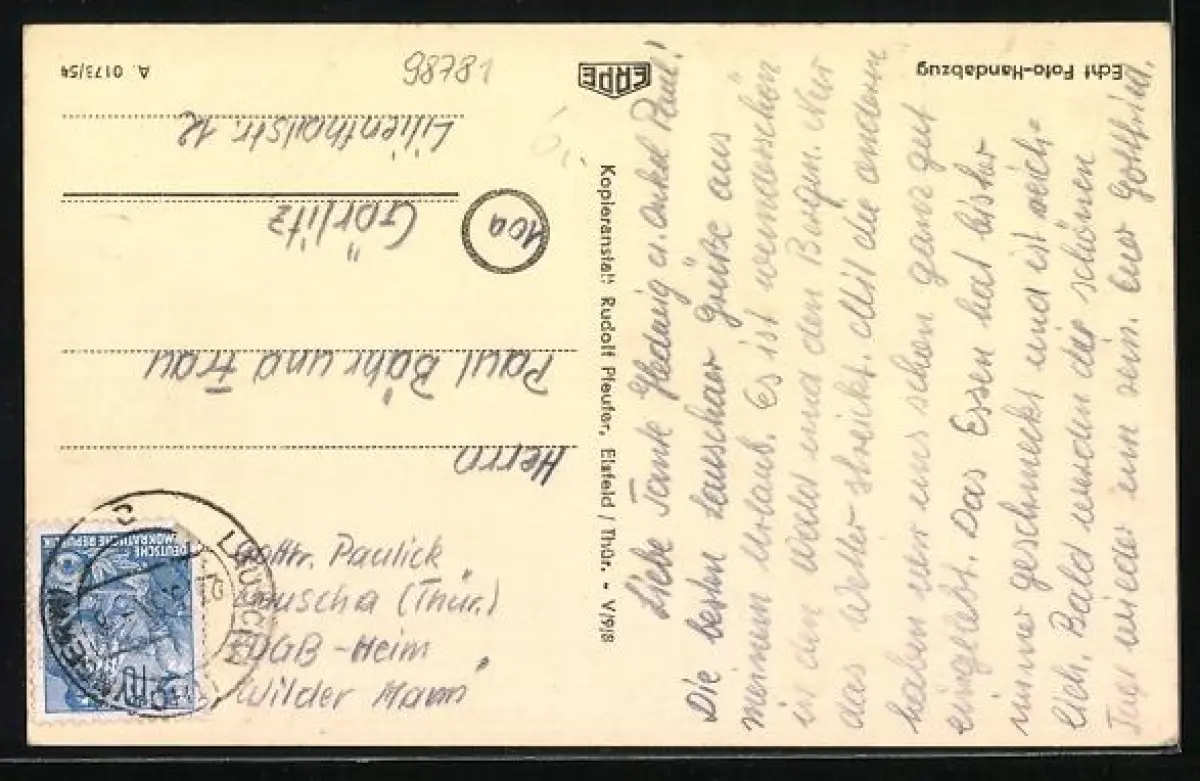 Echt Foto-Handabzug
ERPE
A. 0173/54
98781
Kopieranstalt Rudolf Pfeufer, Eisfeld / Thür. - V/9/8
Liebe Tante Hedwig u. Onkel Paul!
Die besten Lauschaer Grüße aus
meinem Urlaub. Es ist wunderschön
in dem Wald und den Bergen. Nur
das Wetter streikt. Mit die anderen
haben wir uns schon ganz gut
eingelebt. Das Essen hat bisher
immer geschmeckt und ist reich-
lich. Bald werden die schönen
Tage wieder um sein. Euer Gottfried.
Herrn
Paul Bähr und Frau
10a
Görlitz
Lilienthalstr. 12
Gottfr. Paulick
Lauscha (Thür.)
FDGB-Heim
"Wilder Mann"
DEUTSCHE
DEMOKRATISCHE REPUBLIK
10
LAUSCHA